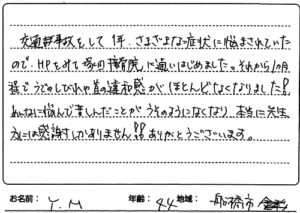 交通事故をして1年、さまざまな症状に悩まされていた
ので、HPをみて塚田接骨院に通いはじめました。それから1ヶ月
程でうでのしびれや首の違和感がほとんどなくなりました!
あんなに悩んで苦しんだことがうそのようになくなり、本当に先生
方には感謝しかありません!!ありがとうございます。
お名前: Y.M 年齢: 44 地域: 船橋市